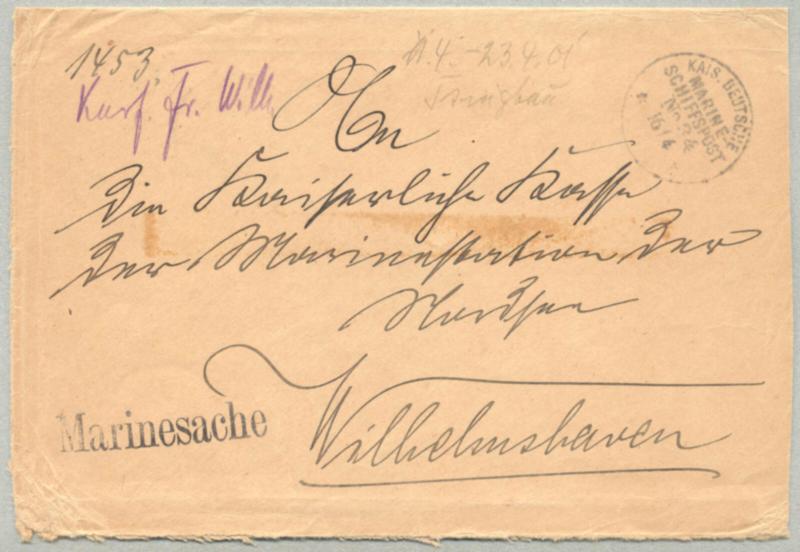 1453
Kurf. Fr. Wilh.
4. - 23.4.01
Tsingtau
KAIS. DEUTSCHE
MARINE-
SCHIFFSPOST
No 24
16/4
An
die Kaiserliche Kasse
der Marinestation der
Nordsee
Wilhelmshaven
Marinesache